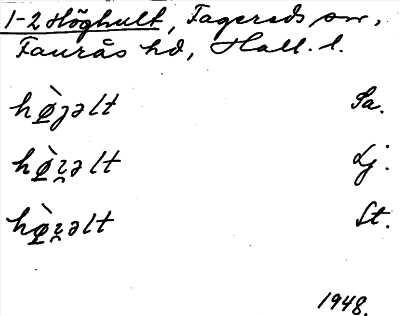 1-2 Höghult, Fagereds sn,
Faurås hd, Hall. l.
hø̀ȷəlt Sa.
hø̀ʐəlt Lj.
hø̀ʐəlt St.
1948.